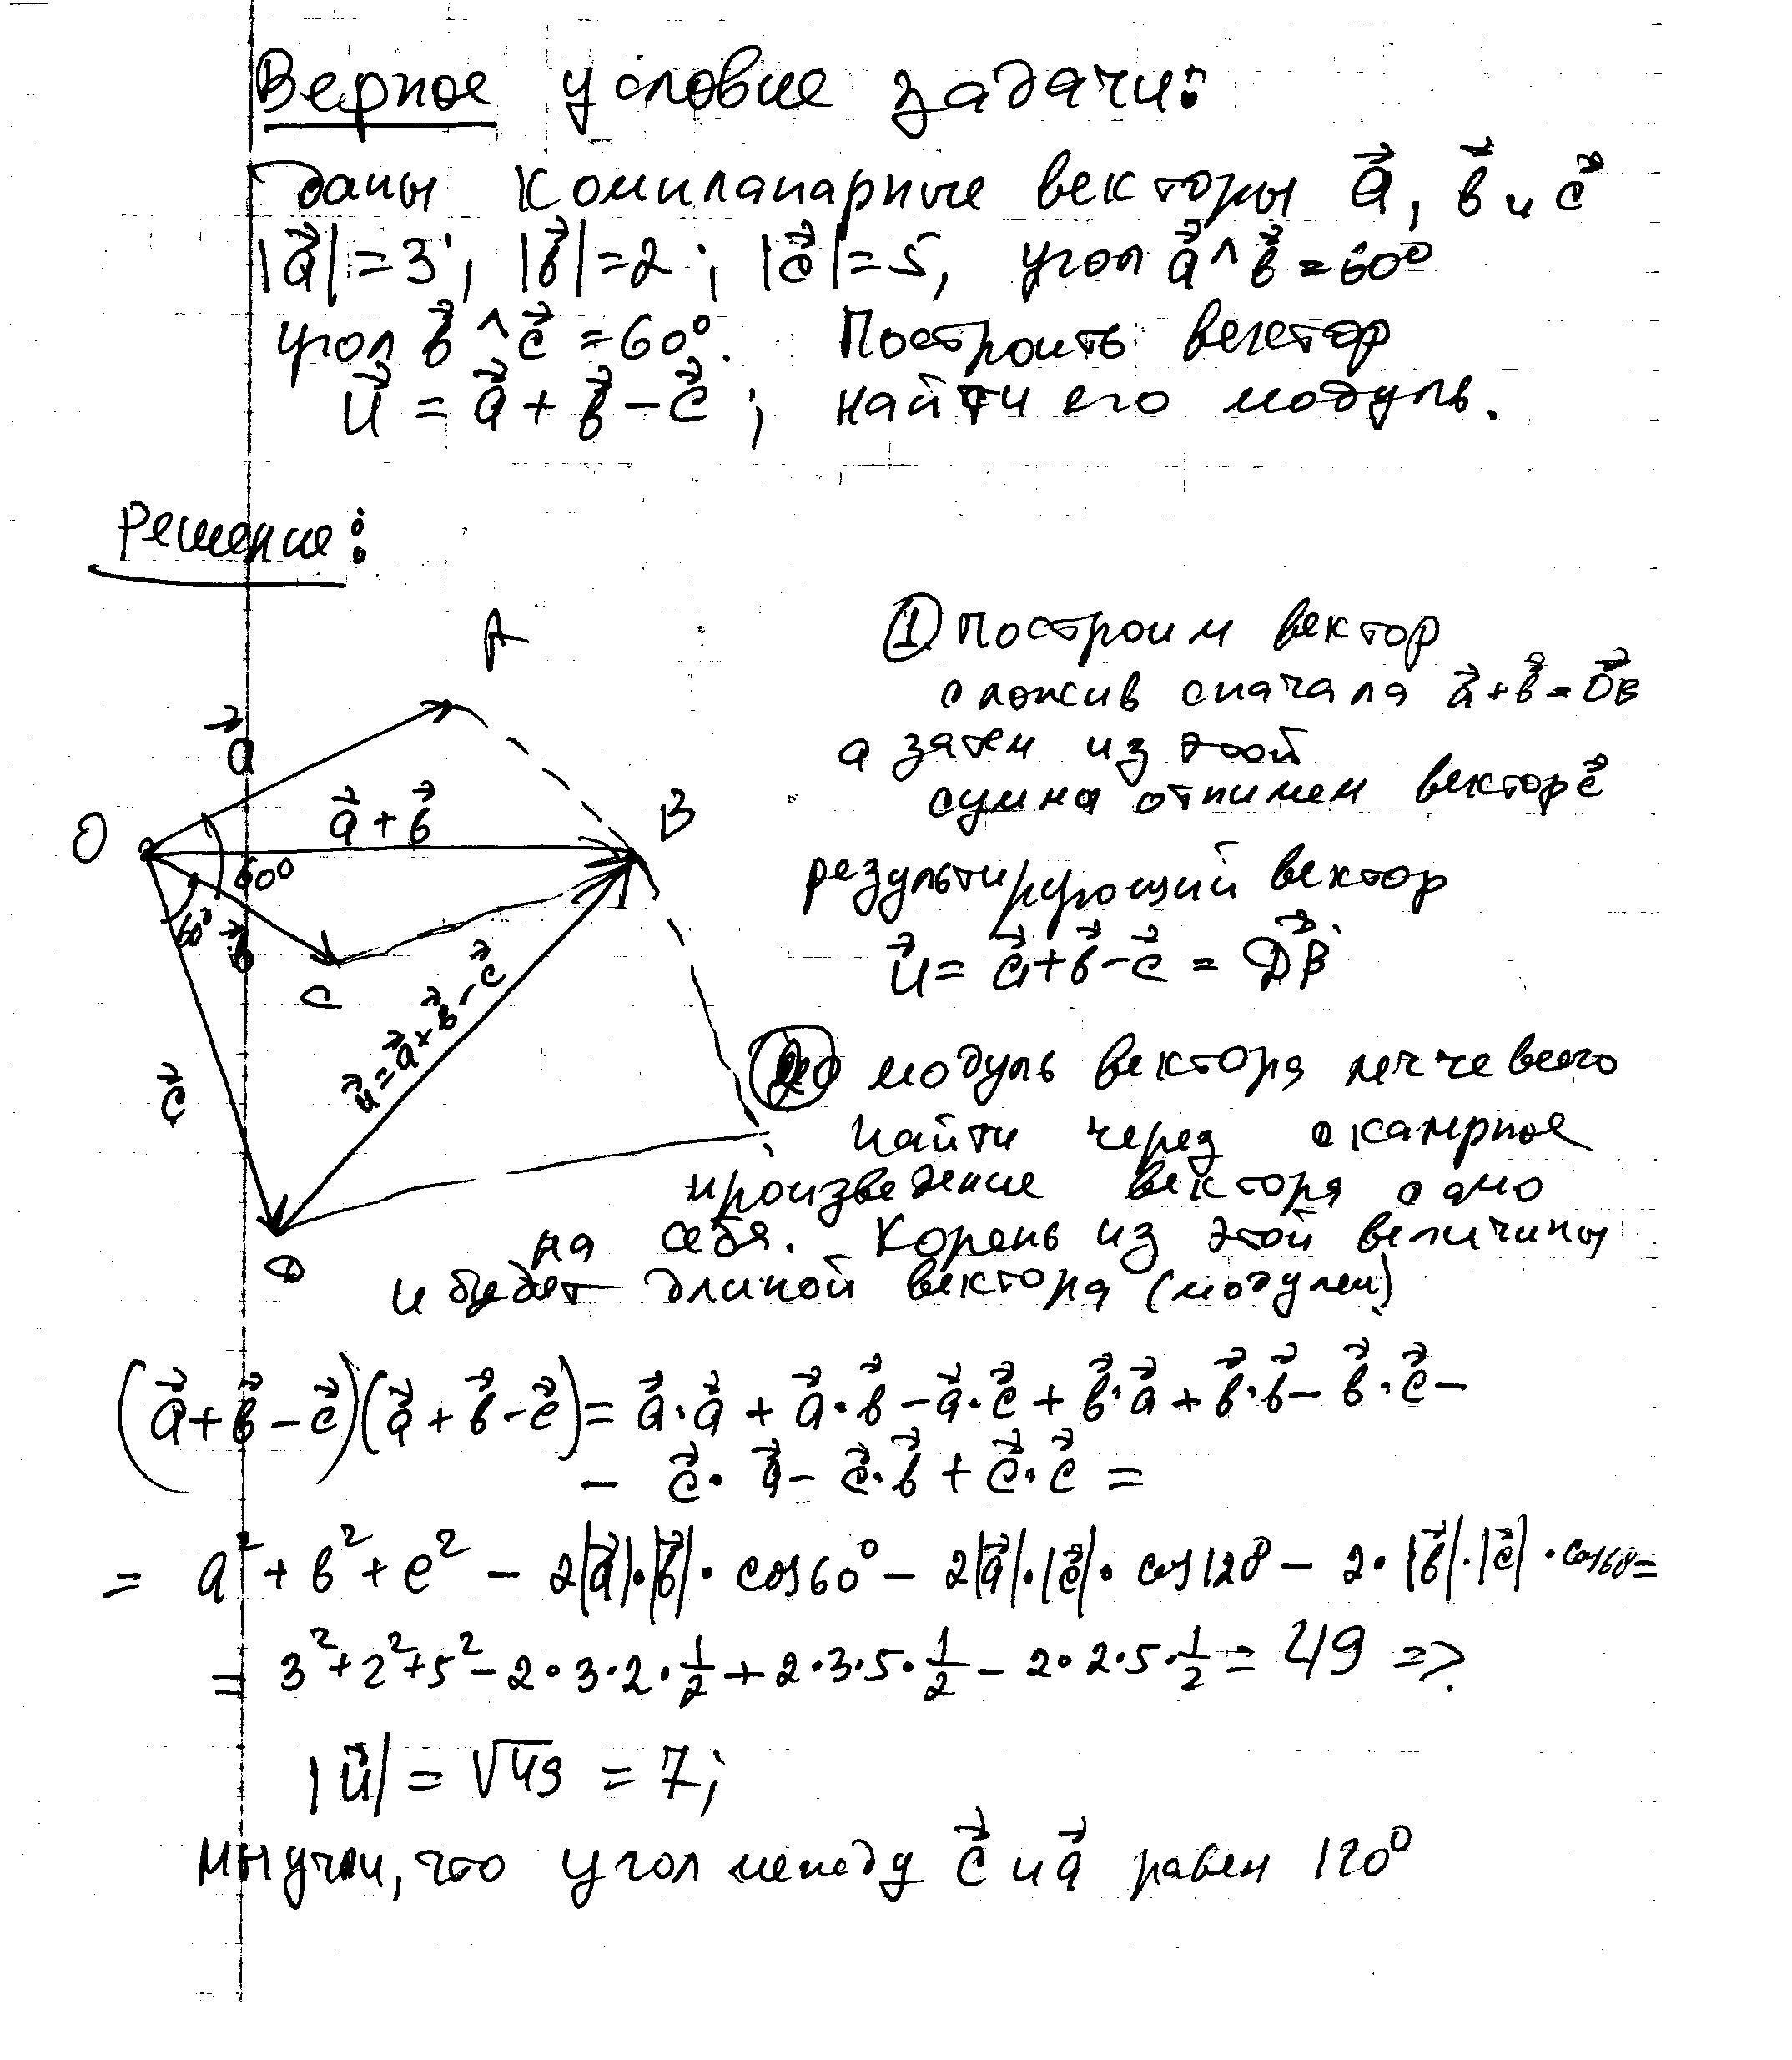 Верное условие задачи:
даны компланарные векторы a⃗, b⃗ и c⃗
|a⃗|=3; |b⃗|=2; |c⃗|=5, угол a⃗^b⃗=60°
угол b⃗^c⃗=60°. Построить вектор
u⃗ = a⃗+b⃗-c⃗; найти его модуль.
Решение:
A
① Построим вектор
сложив сначала a⃗+b⃗=OB⃗
a⃗
а затем из этой
сумма отнимем вектор c⃗
a⃗+b⃗
O
B
60°
результирующий вектор
60°
b⃗
C
u⃗= a⃗+b⃗-c⃗ = DB⃗
u⃗=a⃗+b⃗-c⃗
c⃗
② модуль вектора легче всего
найти через скалярное
произведение вектора само
на себя. Корень из этой величины
D
и будет длиной вектора (модулем)
(a⃗+b⃗-c⃗)(a⃗+b⃗-c⃗)= a⃗·a⃗ + a⃗·b⃗ -a⃗·c⃗ + b⃗·a⃗ + b⃗·b⃗ - b⃗·c⃗ -
- c⃗·a⃗ - c⃗·b⃗ + c⃗·c⃗ =
= a²+b²+c² - 2|a⃗|·|b⃗|·cos60° - 2|a⃗|·|c⃗|·cos120 - 2·|b⃗|·|c⃗|·cos60=
= 3²+2²+5²-2·3·2·1/2+2·3·5·1/2-2·2·5·1/2 = 49 =>
|u⃗| = √49 = 7;
мы учли, что угол между c⃗ и a⃗ равен 120°